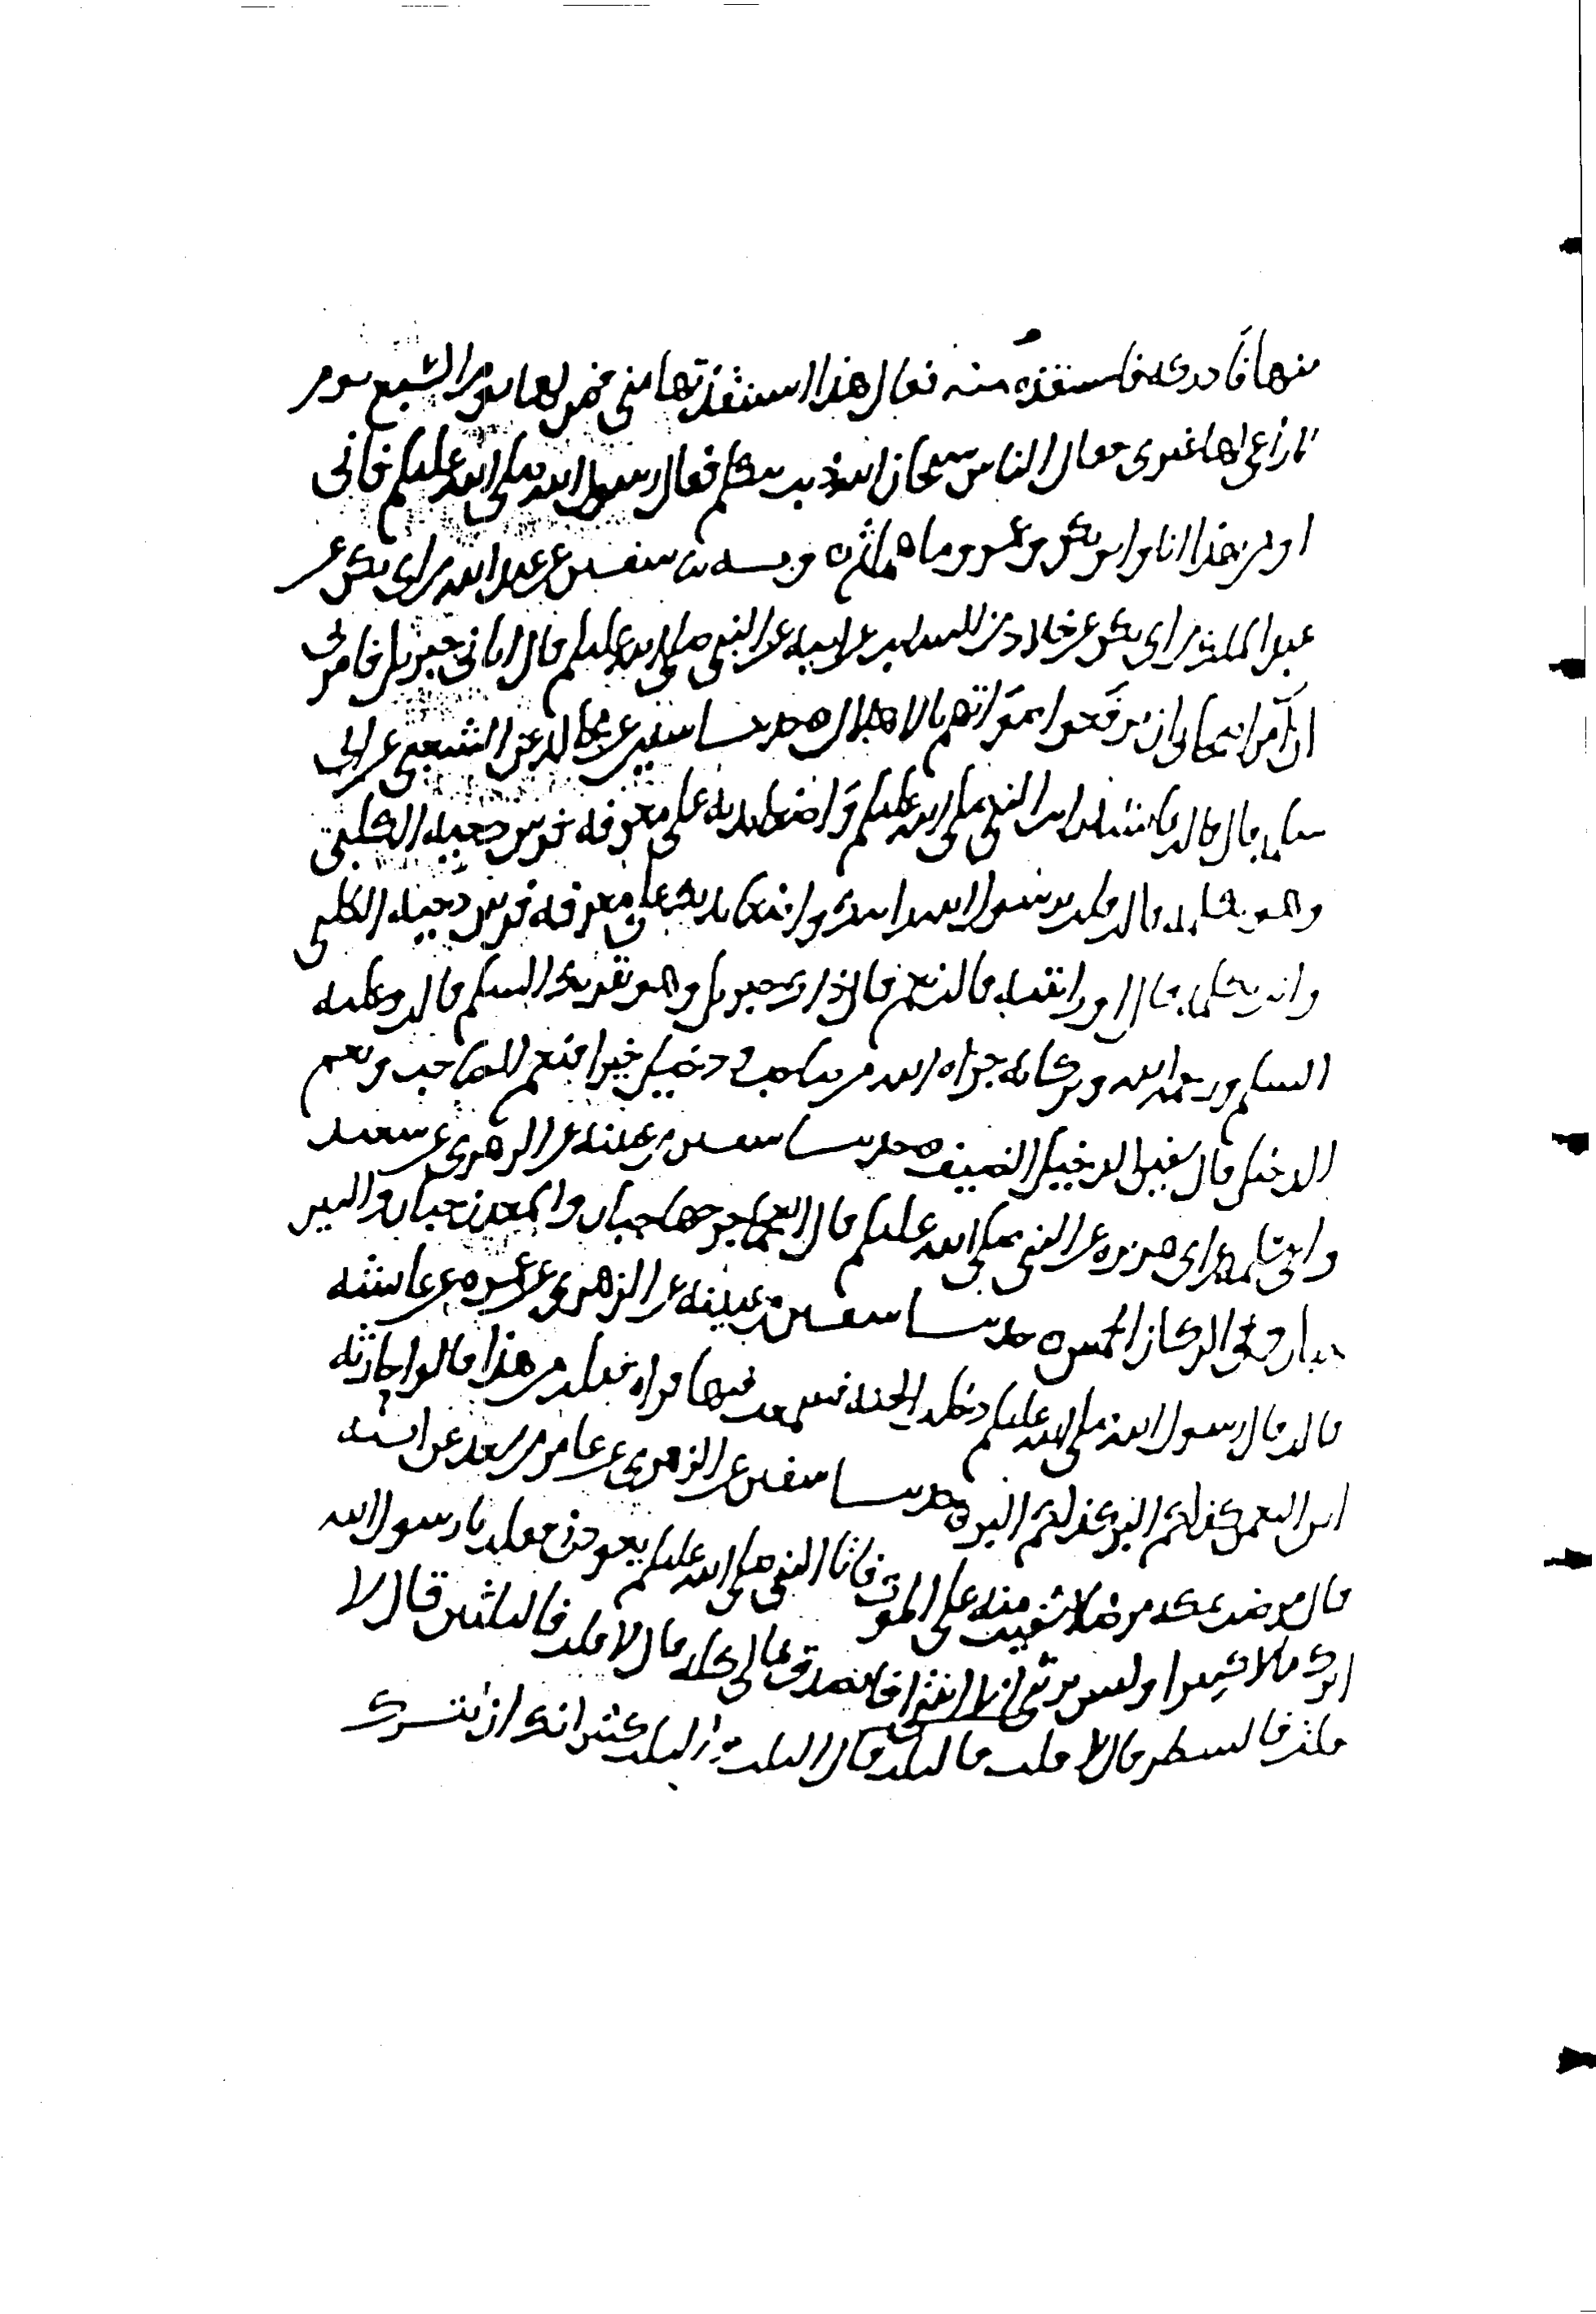 منها فادركه فاستنقذه منه فقال هذا استنقذتها مني فمن لها يوم السبع يوم
لا راعي لها غيري فقال الناس سبحان الله ذيب يتكلم فقال رسول الله صلى الله عليه وسلم فاني
اومن بهذا انا وابو بكر وعمر وما هما ثم ه وبه نا سفين عن عبد الله بن ابي بكر عن
عبد الملك بن ابي بكر عن خلاد بن السايب عن ابيه عن النبي صلى الله عليه وسلم قال اتاني جبريل فامرني
ان آمر اصحابي ان يرفعوا اصواتهم بالاهلال ه حدثنا سفين عن مجالد عن الشعبي عن ابي
سلمة قال قالت عائشة رايت النبي صلى الله عليه وسلم واضعا يديه على معرفة فرس دحية الكلبي
وهو يكلمه قالت قلت يرسول الله رايتك واضعا يديك على معرفة فرس دحية الكلبي
وانت تكلمه قال او رايتيه قالت نعم قال ذاك جبريل وهو يقريك السلم قالت وعليه
السلم ورحمة الله وبركاته جزاه الله من صاحب و دخيل خيرا فنعم الصاحب ونعم
الدخيل قال سفين الدخيل الضيف ه حدثنا سفين بن عيينة عن الزهري عن سعيد
وابي سلمة عن ابي هريرة عن النبي صلى الله عليه وسلم قال العجما جرحها جبار والمعدن جبار والبير
جبار وفي الركاز الخمس ه حدثنا سفين بن عيينة عن الزهري عن عمرة عن عائشة
قالت قال رسول الله صلى الله عليه وسلم دخلت الجنة فسمعت فيها قراة فقلت من هذا قالوا حارثة
ابن النعمن كذلكم البر كذلكم البر ه حدثنا سفين عن الزهري عن عامر بن سعد عن ابيه
قال مرضت بمكة مرضا اشفيت منه على الموت فاتا النبي صلى الله عليه وسلم يعودني فقلت يا رسول الله
ان لي مالا كثيرا وليس يرثني الا ابنتي افاتصدق بمالي كله قال لا قلت فالثلثين قال لا
قلت فالشطر قال لا قلت فالثلث قال الثلث والثلث كثير انك ان تترك